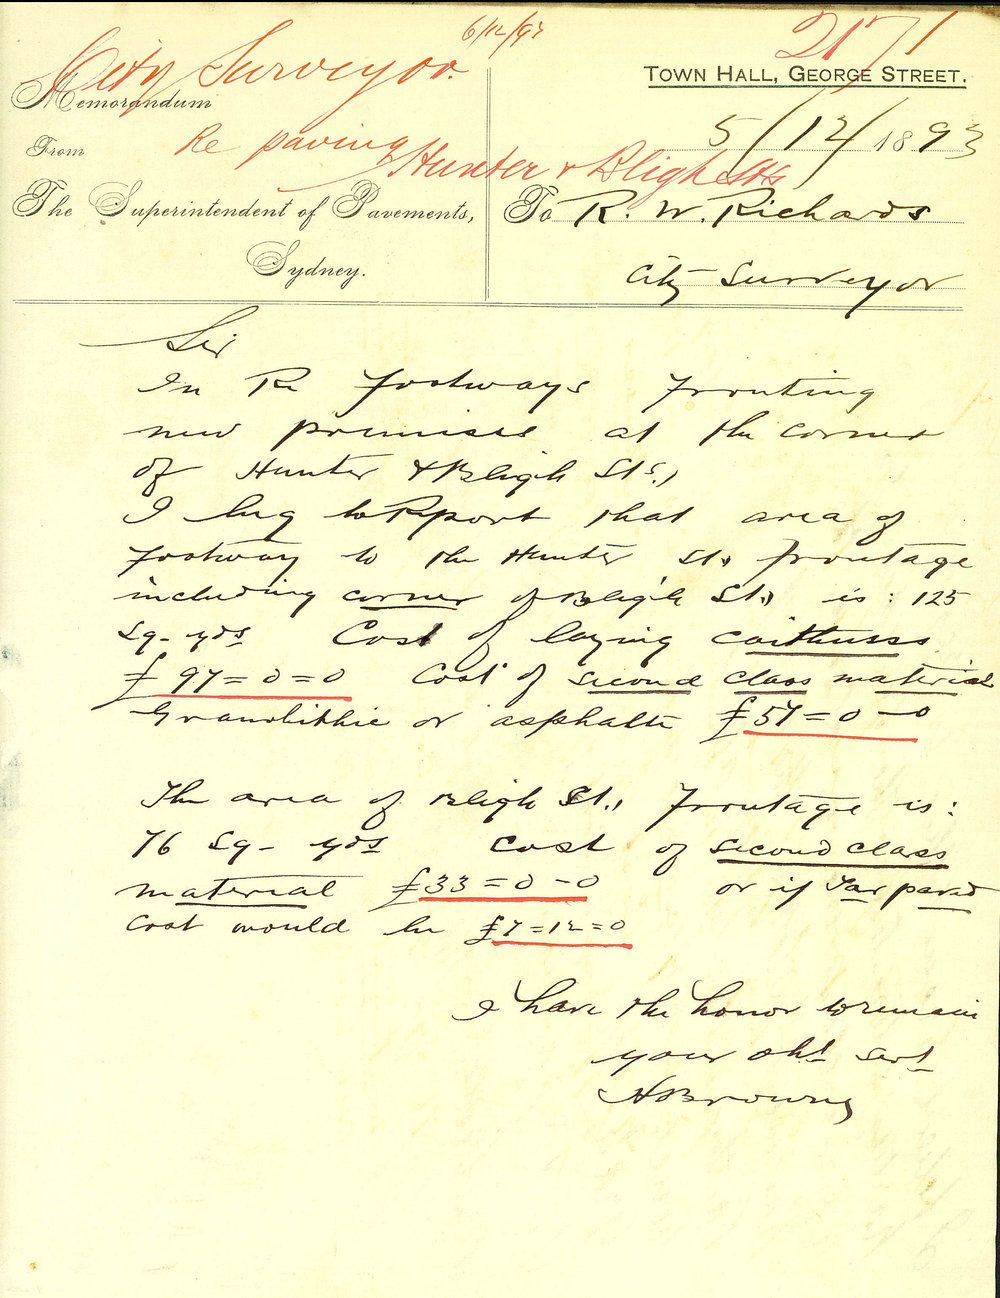 6/12/93
217/1
City Surveyor.
TOWN HALL, GEORGE STREET.
Memorandum
5/12/1893
From
Re paving Hunter & Bligh Sts
The Superintendent of Pavements,
To R. W. Richards
Sydney.
City Surveyor
Sir
In Re footways fronting
new premises at the corner
of Hunter & Bligh Sts.,
I beg to Report that area of
footway to the Hunter St., frontage
including corner of Bligh St., is: 125
Sq- yds Cost of laying caithness
£97=0=0 Cost of second class material
Granolithic or asphalte £57=0-0
The area of Bligh St., Frontage is:
76 Sq- yds cost of second class
material £33=0-0 or if Tar paved
cost would be £7=12=0
I have the honor to remain
your obt servt
HBrowne